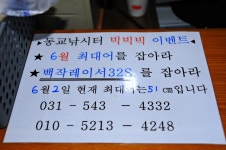 ▶동교낚시터 빅빅빅 이벤트◀
★ 6월 최대어를 잡아라
★백작레이서32S★를 잡아라
6월2일 현재 최대어는51㎝입니다
031 - 543 - 4332
010 - 5213 - 4248